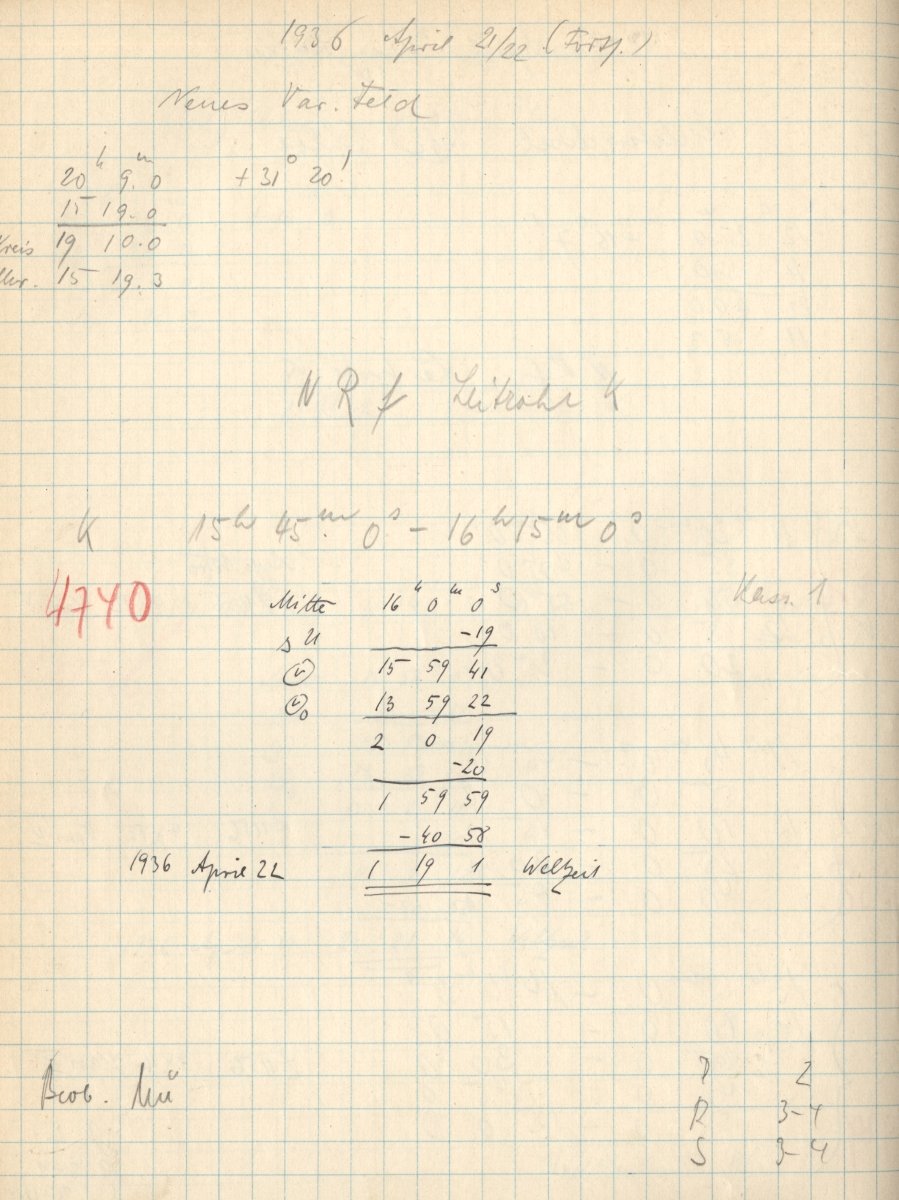 1936 April 21/22 (Forts.)
Neues Var. Feld
20ʰ 9.ᵐ0 +31° 20'
15 19.0
Kreis 19 10.0
Uhr. 15 19.3
N R f Leitrohr K
K 15ʰ 45ᵐ 0ˢ – 16ʰ 15ᵐ 0ˢ
4740
Kass. 1
Mitte 16ʰ 0ᵐ 0ˢ
s U -19
15 59 41
13 59 22
2 0 19
-20
1 59 59
-40 58
1936 April 22 1 19 1 Weltzeit
Beob. Mü
2
R 3-4
S 3-4